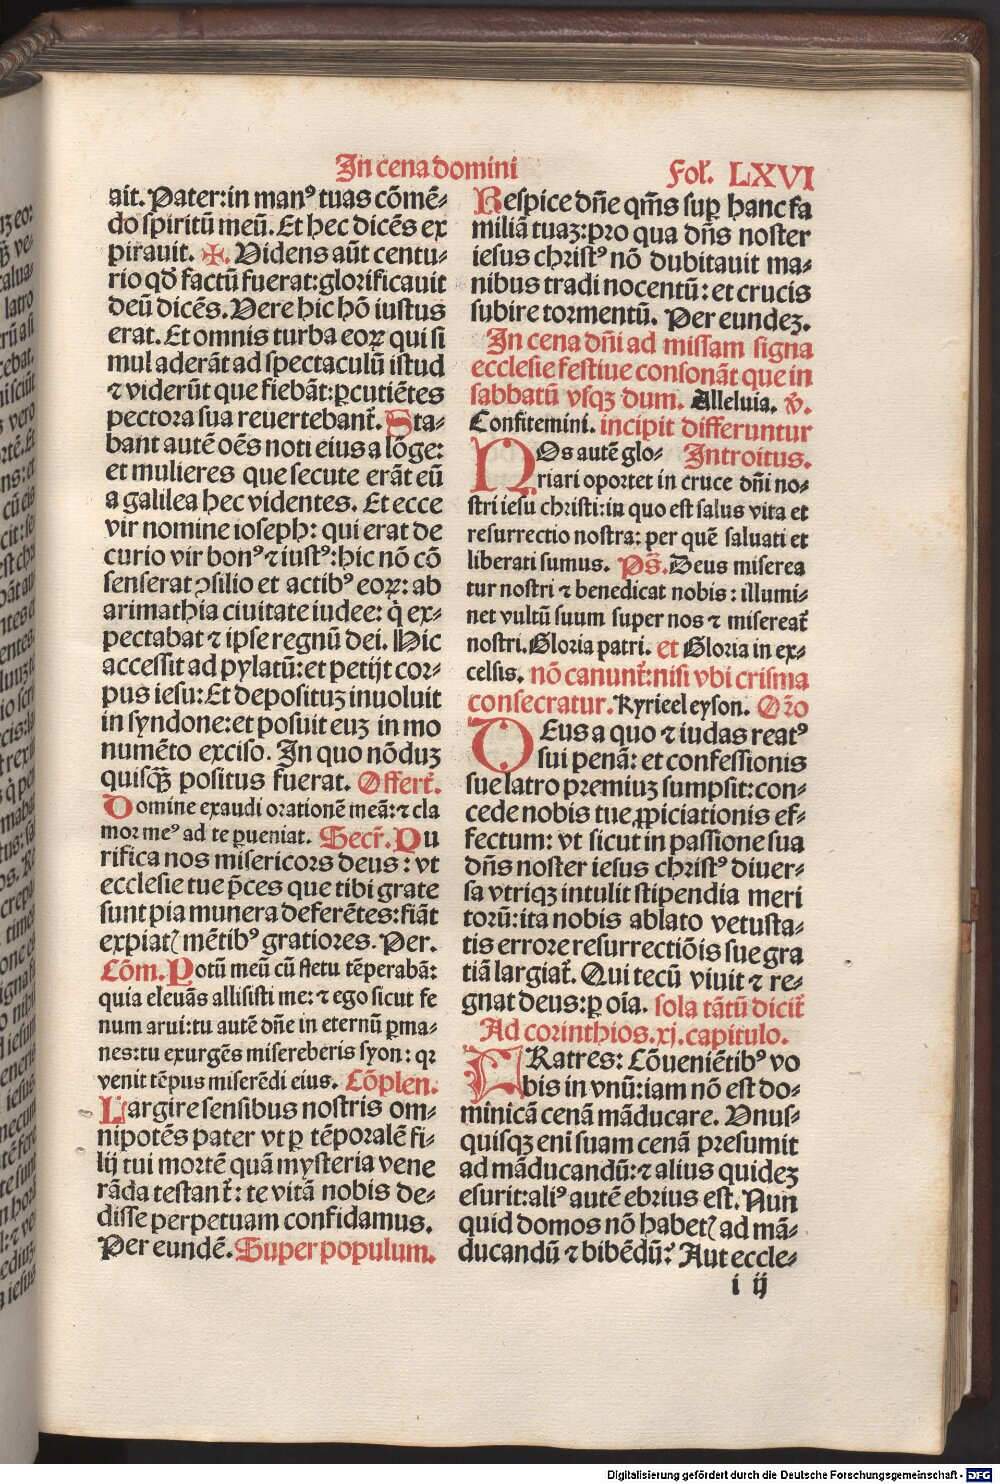 In cena domini
Fol. LXVI
ait. Pater:in manꝰ tuas cōmē⸗
do spiritū meū. Et hec dicēs ex
pirauit. ✠. Videns aūt centu⸗
rio qd̄ factū fuerat:glorificauit
deū dicēs. Vere hic hō iustus
erat. Et omnis turba eoꝝ qui si
mul aderāt ad spectaculū istud
⁊ viderūt que fiebāt:ꝑcutiētes
pectora sua reuertebant᷑. Sta⸗
bant autē oēs noti eius a lōge:
et mulieres que secute erāt eū
a galilea hec videntes. Et ecce
vir nomine ioseph: qui erat de
curio vir bonꝰ ⁊ iustꝰ:hic nō cō
senserat ↄsilio et actibꝰ eoꝝ: ab
arimathia ciuitate iudee: q̇ ex⸗
pectabat ⁊ ipse regnū dei. Hic
accessit ad pylatū:et petijt cor⸗
pus iesu:Et deposituꝫ inuoluit
in syndone:et posuit euꝫ in mo
numēto exciso. In quo nōduꝫ
quisq̄ꝫ positus fuerat. Offert᷑.
Domine exaudi orationē meā:⁊ cla
mor meꝰ ad te ꝑueniat. Secr̄. Pu
rifica nos misericors deus: vt
ecclesie tue p̄ces que tibi grate
sunt pia munera deferētes:fiāt
expiatꝭ mētibꝰ gratiores. Per.
Cōm. Potū meū cū fletu tēperabā:
quia eleuās allisisti me: ⁊ ego sicut fe
num arui:tu autē dn̄e in eternū ꝑma⸗
nes:tu exurgēs misereberis syon: qꝛ
venit tēpus miserēdi eius. Cōplen.
Largire sensibus nostris om⸗
nipotēs pater vt ꝑ tēporalē fi⸗
lij tui mortē quā mysteria vene
rāda testant᷑: te vitā nobis de⸗
disse perpetuam confidamus.
Per eundē. Super populum.
Respice dn̄e qm̄s suꝑ hanc fa
miliā tuaꝫ:pro qua dn̄s noster
iesus christꝰ nō dubitauit ma⸗
nibus tradi nocentū: et crucis
subire tormentū. Per eundeꝫ.
In cena dn̄i ad missam signa
ecclesie festiue consonāt que in
sabbatū vsqꝫ dum. Alleluia. v̄.
Confitemini. incipit differuntur
NOs autē glo⸗ Introitus.
riari oportet in cruce dn̄i no⸗
stri iesu christi:in quo est salus vita et
resurrectio nostra: per quē saluati et
liberati sumus. Ps̄. Deus miserea
tur nostri ⁊ benedicat nobis: illumi⸗
net vultū suum super nos ⁊ misereat᷑
nostri. Gloria patri. et Gloria in ex⸗
celsis. nō canunt᷑:nisi vbi crisma
consecratur. Kyrieeleyson. Or̄o
DEus a quo ⁊ iudas reatꝰ
sui penā: et confessionis
sue latro premiuꝫ sumpsit: con⸗
cede nobis tue ꝓpiciationis ef⸗
fectum: vt sicut in passione sua
dn̄s noster iesus christꝰ diuer⸗
sa vtriqꝫ intulit stipendia meri
torū: ita nobis ablato vetusta⸗
tis errore resurrectiōis sue gra
tiā largiat᷑. Qui tecū viuit ⁊ re⸗
gnat deus:ꝑ oīa. sola tātū dicit᷑
Ad corinthios. xj. capitulo.
FRatres: Cōueniētibꝰ vo
bis in vnū: iam nō est do⸗
minicā cenā māducare. Vnus⸗
quisqꝫ eni suam cenā presumit
ad māducandū: ⁊ alius quideꝫ
esurit: aliꝰ autē ebrius est. Nun
quid domos nō habetꝭ ad mā⸗
ducandū ⁊ bibēdū? Aut eccle⸗
i ij
Digitalisierung gefördert durch die Deutsche Forschungsgemeinschaft - DFG